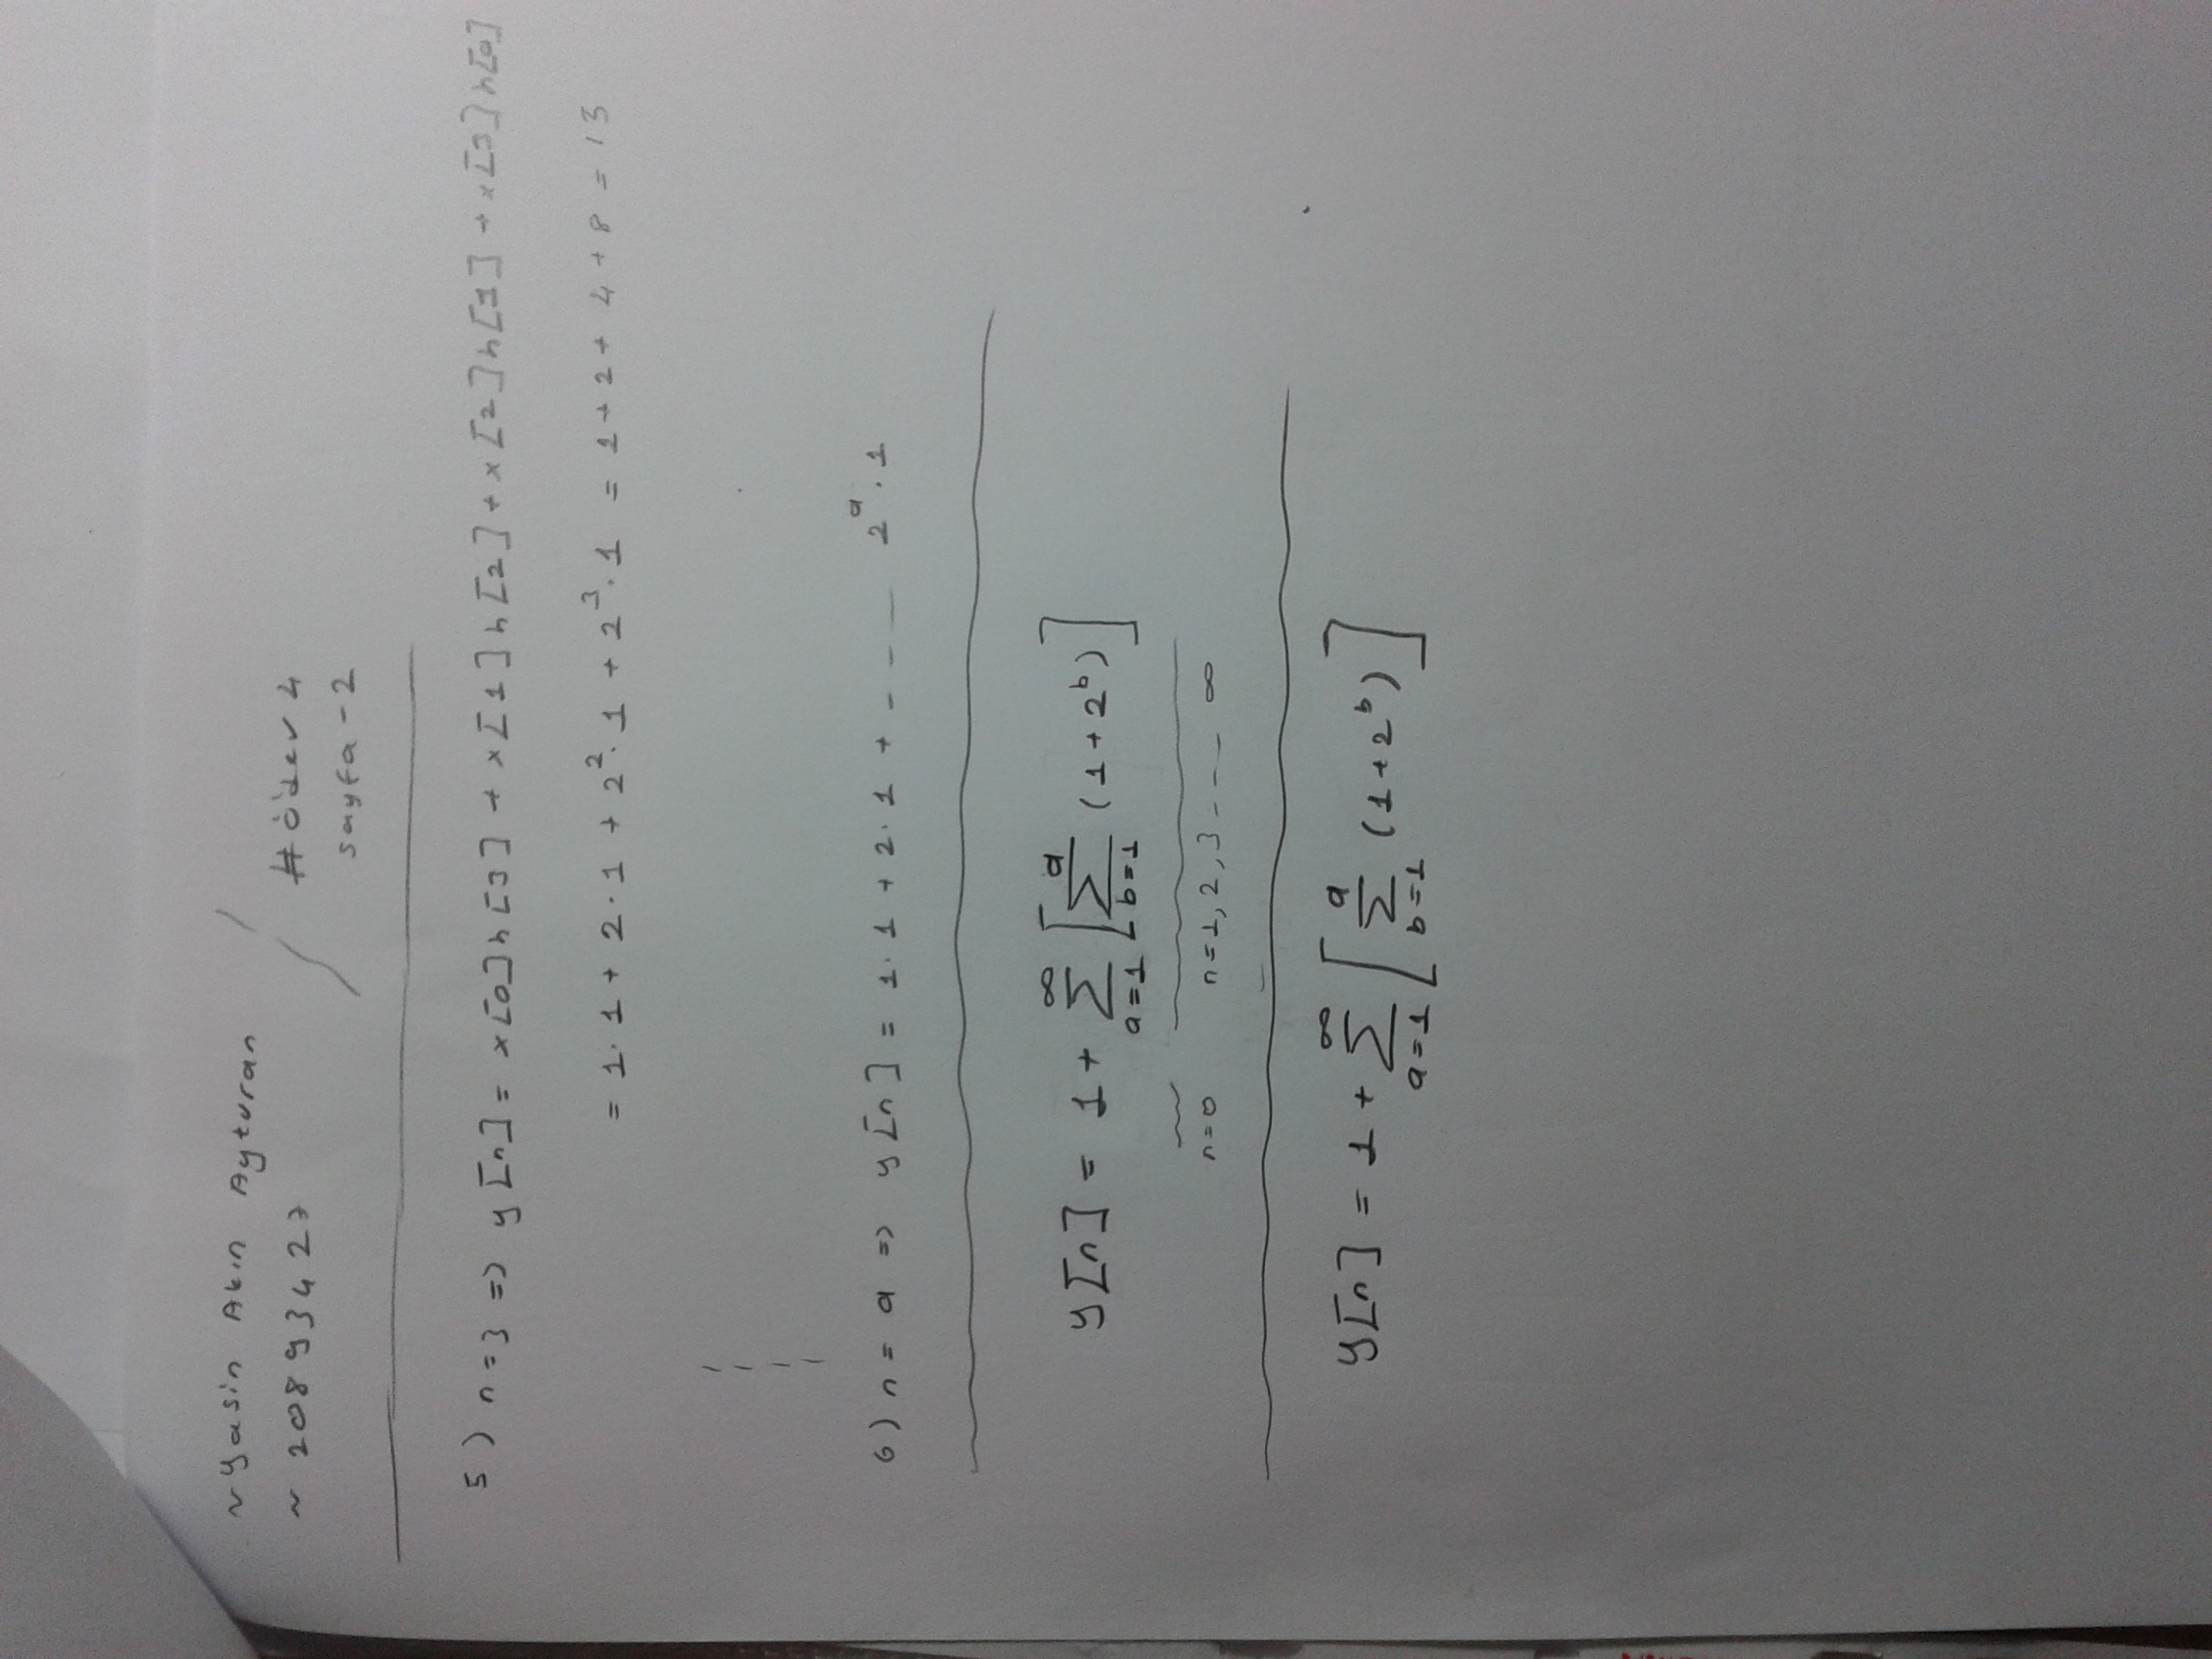 ~ Yasin Akın Ayturan
~ 20893427
# ödev 4
sayfa - 2
5) n = 3 => y[n] = x[0]h[3] + x[1]h[2] + x[2]h[1] + x[3]h[0]
= 1·1 + 2·1 + 2²·1 + 2³·1 = 1 + 2 + 4 + 8 = 13
6) n = a => y[n] = 1·1 + 2·1 + - - - 2^a · 1
y[n] = 1 + ∑_{a=1}^{∞} [ ∑_{b=1}^{a} (1 + 2^b) ]
n=0 n=1,2,3 - - - ∞
y[n] = 1 + ∑_{a=1}^{∞} [ ∑_{b=1}^{a} (1 + 2^b) ]